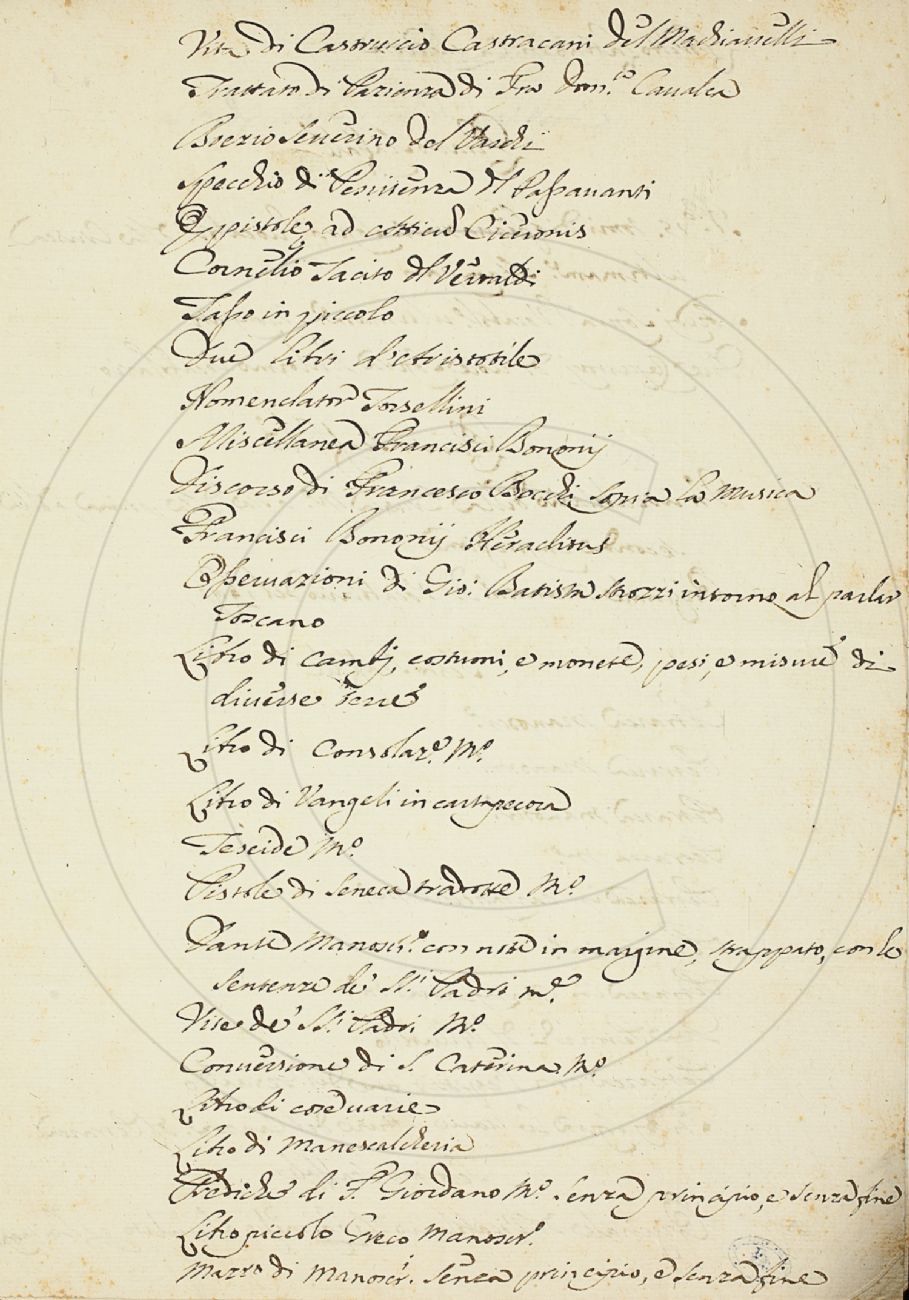 Vita di Castruccio Castracani del Machiavelli
Trattato di Pazienza di Fra Dom.co Cavalca
Boezio Severino del Varchi
Specchio di Penitenza del Passavanti
Eppistole ad Atticum Ciceronis
Cornelio Tacito del
Tasso in piccolo
Due libri d'Aristotile
Nomenclator Torsellini
Miscellanea Francisci Bononij
Discorso di Francesco Bocchi sopra la Musica
Francisci Bononij Heraclitus
Osservazioni di Gio: Batista Strozzi intorno al parlar
Toscano
Libro di Cambj, costumi, e monete, pesi, e misure di
diverse terre
Libro di Consolaz.e M.o
Libro di Vangeli in cartapecora
Teseide M.o
Pistole di Seneca tradotte M.o
Dante Manosc.o con note in margine, strappato, con le
Sentenze de' S.ti Padri m.o
Vite de' S.ti Padri M.o
Conversione di S. Caterina M.o
Libro di cose varie
Libro di Manescalcheria
Prediche di F. Giordano M.o senza principio, e senza fine
Libro piccolo Greco Manoscr.o
Mazzo di Manoscr. senza principio, e senza fine